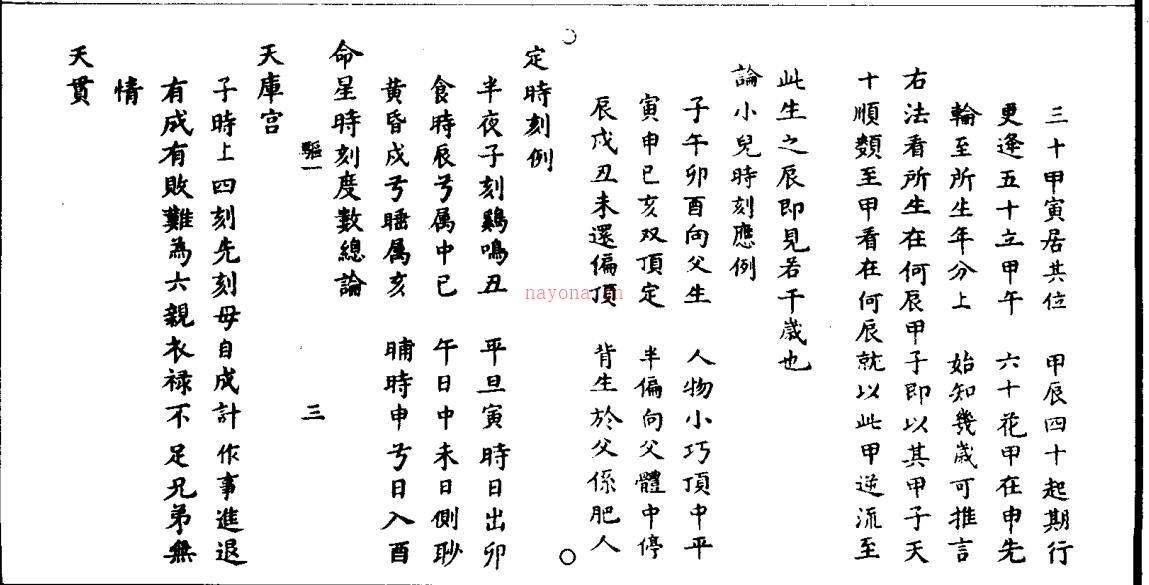 三十甲寅居其位　甲辰四十起期行
更逢五十立甲午　六十花甲在申先
輪至所生年分上　始知幾歲可推言
右法看所生在何辰甲子即以其甲子天
十順數至甲看在何辰就以此甲逆流至
此生之辰即見若干歲也
論小兒時刻應例
子午卯酉向父生　人物小巧頂中平
寅申巳亥双頂定　半偏向父體中停
辰戌丑未還偏頂　背生於父係肥人
定時刻例
半夜子刻鷄鳴丑　平旦寅時日出卯
食時辰兮属中巳　午日中未日側聁
黄昏戍兮睡属亥　晡時申兮日入酉
命星時刻度數總論
驅一　三
天庫宫
子時上四刻先刻母自成計作事進退
有成有敗難為六親衣禄不足兄弟無
情
天貫
nayona.cn